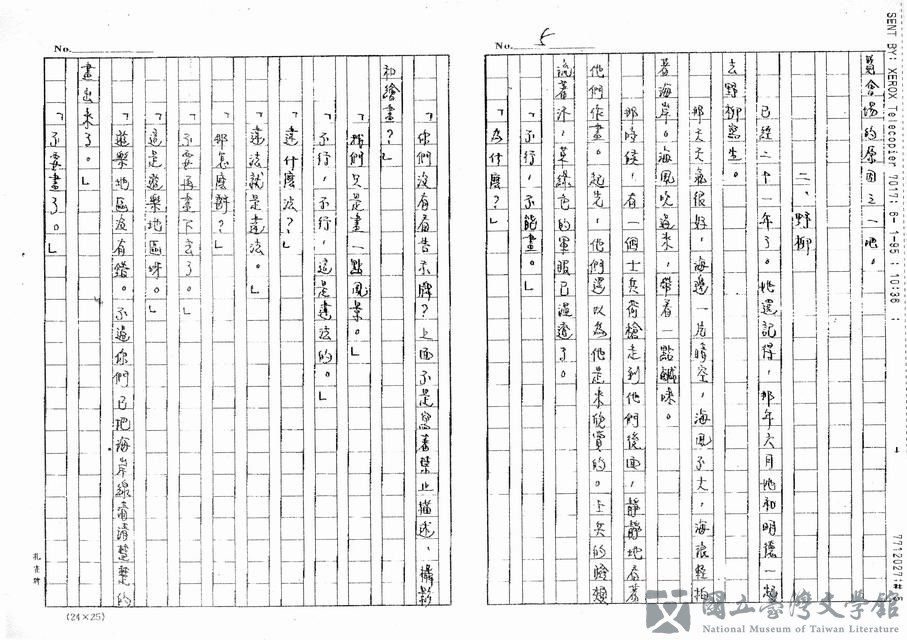 SENT BY: XEROX Telecopier 7017; 8- 1-95 10:36 ;
7712027;# 5
No. 5
覽會場的原因之一吧。
二、野柳
已經二十一年了。她還記得，那年六月她和明德一起
去野柳寫生。
那天天氣很好，海邊一片晴空，海風不大，海浪輕拍
著海岸。海風吹過來，帶着一點鹹味。
那時候，有一個士兵荷槍走到他們後面，靜靜地看著
他們作畫。起先，他們還以為他是來欣賞的。士兵的臉頰
流著汗，草綠色的軍服已濕透了。
「不行，不能畫。」
「為什麼？」
No.
「你們沒有看告示牌？上面不是寫著禁止描述、攝影
和繪畫？」
「我們只是畫一點風景。」
「不行，不行，這是違法的。」
「違什麼法？」
「違法就是違法。」
「那怎麼辦？」
「不要再畫下去了。」
「這是遊樂地區呀。」
「遊樂地區沒有錯。不過你們已把海岸線畫清楚楚的
畫出來了。」
「不要畫了。」
(24×25)
國立臺灣文學館
National Museum of Taiwan Literature